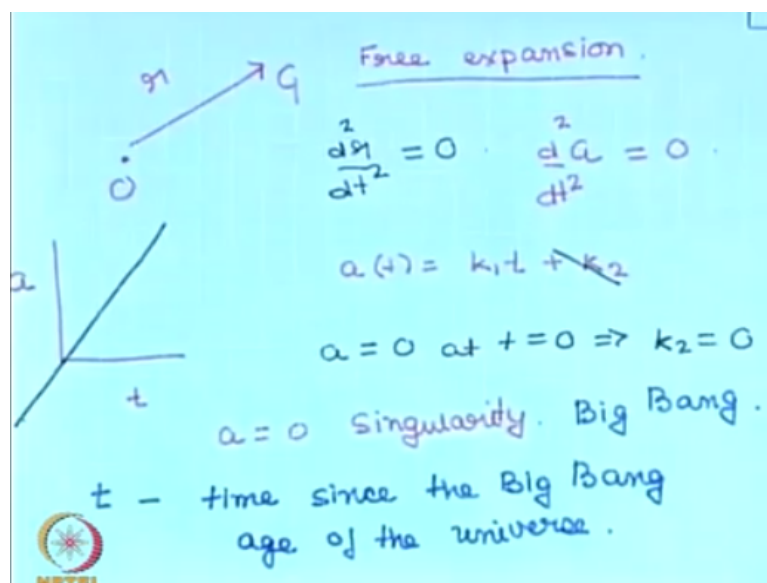 Free expansion.
r G
O
d²r/dt² = 0. d²a/dt² = 0.
a(t) = k₁t + k₂
a
t
a = 0 at t = 0 => k₂ = 0
a = 0 Singularity. Big Bang.
t - time since the Big Bang
age of the universe.
NPTEL